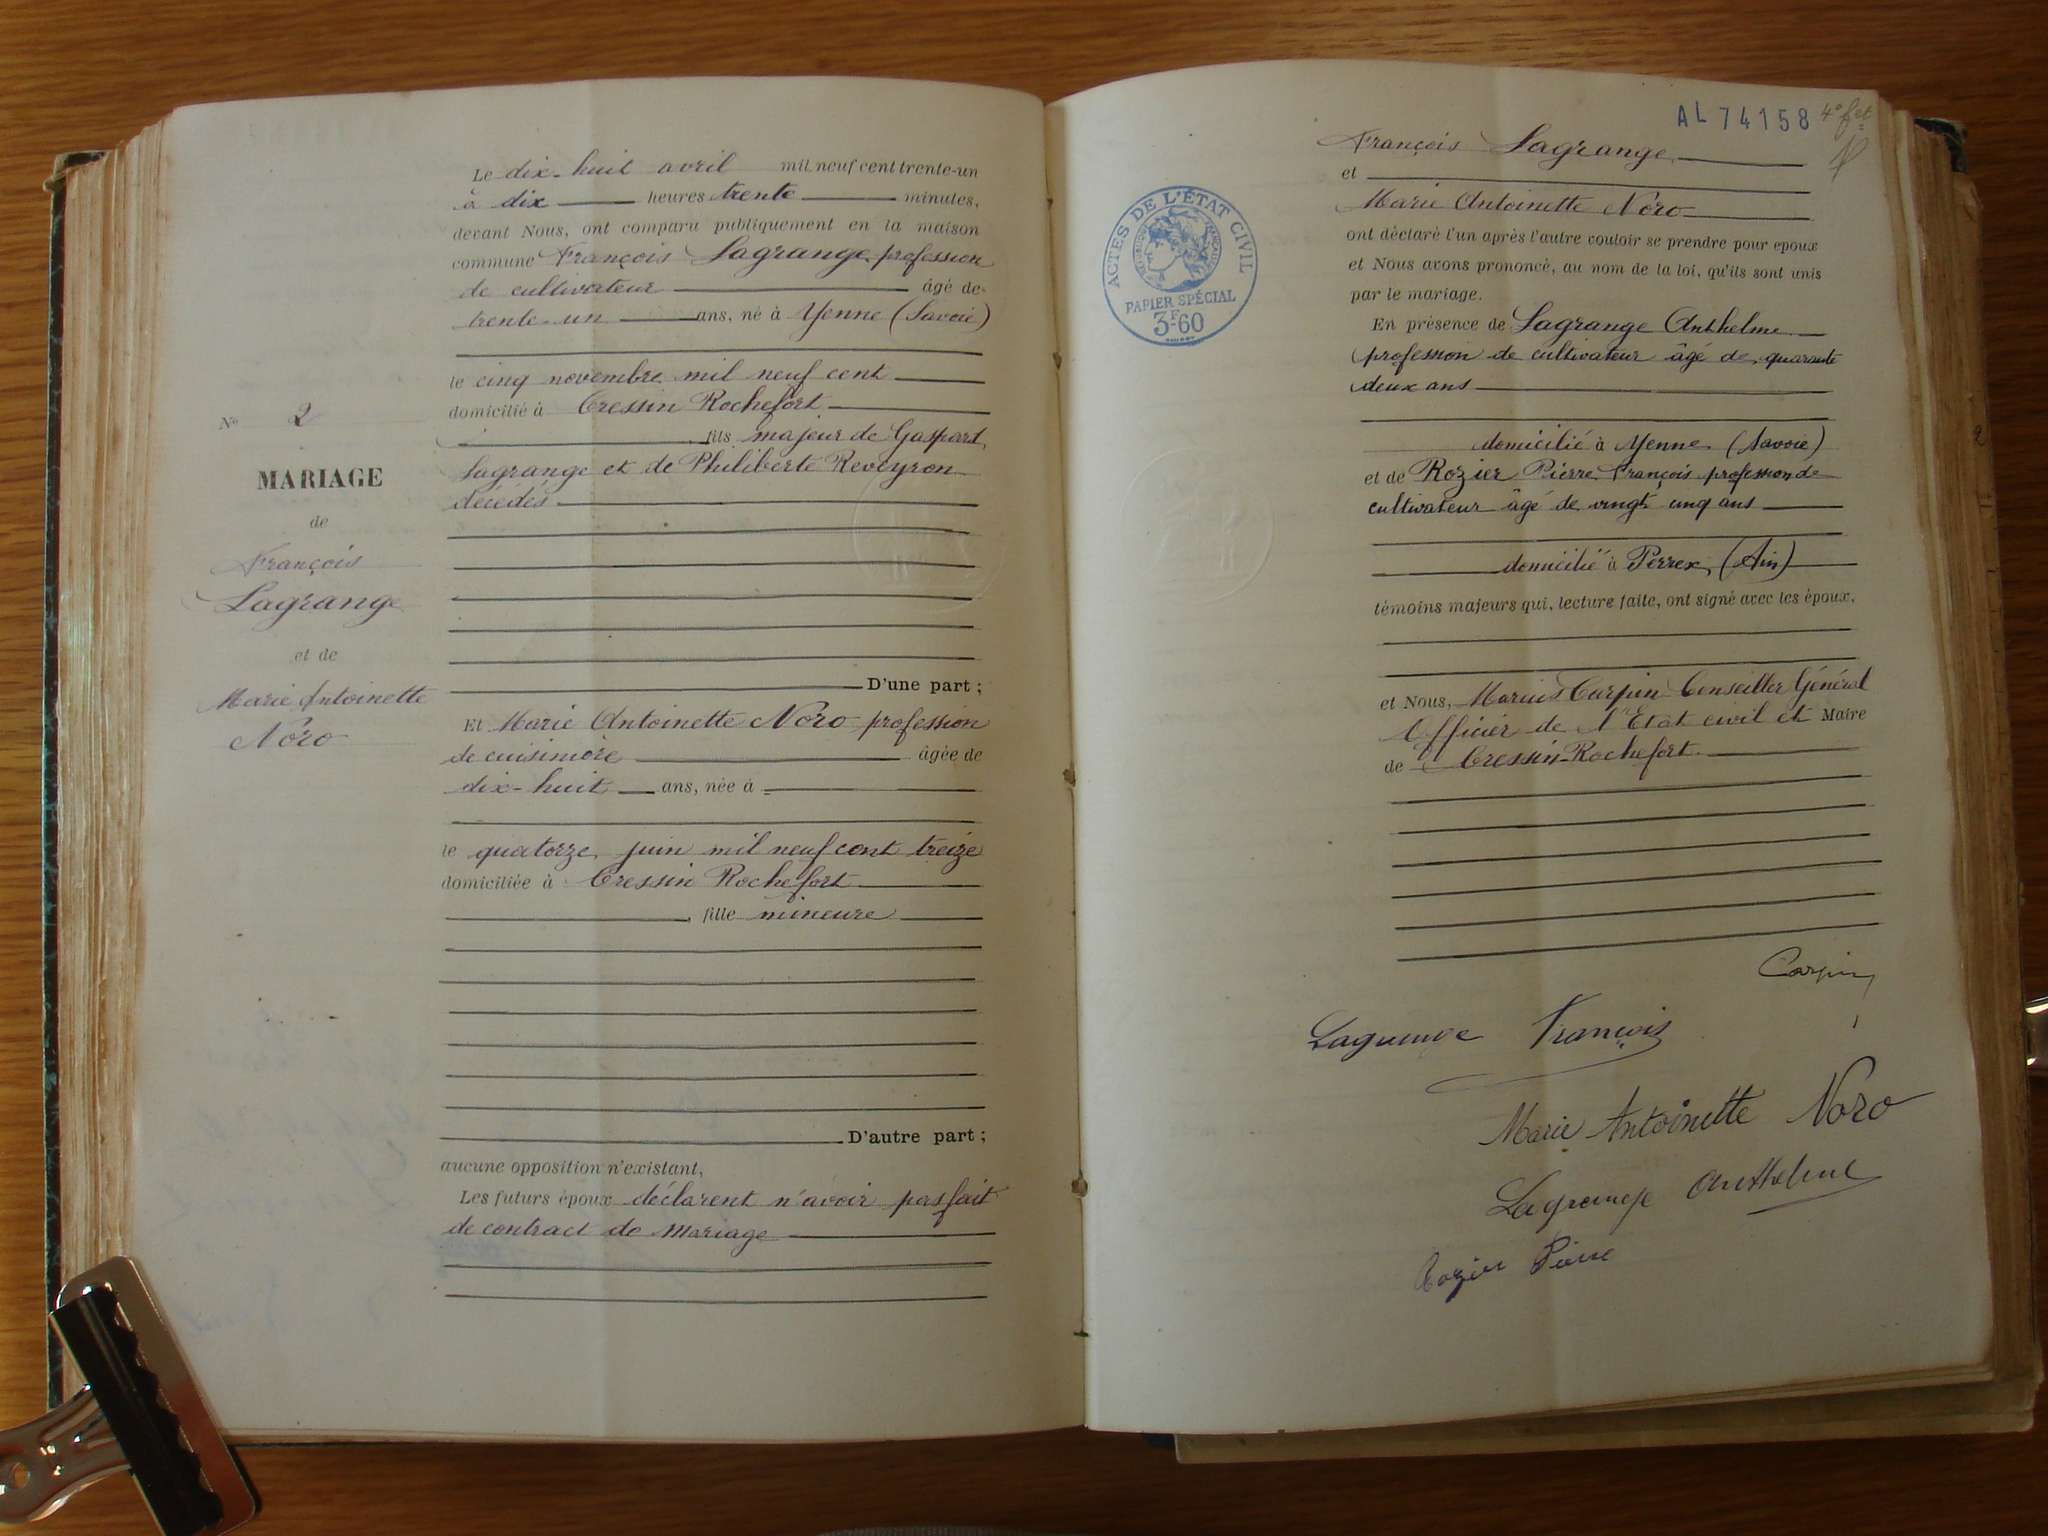 Le dix-huit avril mil neuf cent trente-un
à dix heures trente minutes,
devant Nous, ont comparu publiquement en la maison
commune François Lagrange profession
de cultivateur âgé de
trente-un ans, né à Yenne (Savoie)
le cinq novembre mil neuf cent
domicilié à Cressin Rochefort
fils majeur de Gaspard
Lagrange et de Philiberte Reveyron
décédés
D'une part ;
Et Marie Antoinette Noro profession
de cuisinière âgée de
dix-huit ans, née à
le quatorze juin mil neuf cent treize
domiciliée à Cressin Rochefort
, fille mineure
D'autre part ;
aucune opposition n'existant,
Les futurs époux déclarent n'avoir pas fait
de contract de mariage
No 2
MARIAGE
de
François
Lagrange
et de
Marie Antoinette
Noro
AL 74158
ACTES DE L'ÉTAT CIVIL
PAPIER SPÉCIAL
3F60
François Lagrange
et
Marie Antoinette Noro
ont déclaré l'un après l'autre vouloir se prendre pour époux
et Nous avons prononcé, au nom de la loi, qu'ils sont unis
par le mariage.
En présence de Lagrange Anthelme
profession de cultivateur âgé de quarante
deux ans
domicilié à Yenne (Savoie)
et de Rozier Pierre François profession de
cultivateur âgé de vingt cinq ans
domicilié à Perrex (Ain)
témoins majeurs qui, lecture faite, ont signé avec les époux,
et Nous, Marius Carpin Conseiller Général
Officier de l'Etat civil et Maire
de Cressin-Rochefort.
Carpin
Lagrange François
Marie Antoinette Noro
Lagrange Anthelme
Rozier Pierre